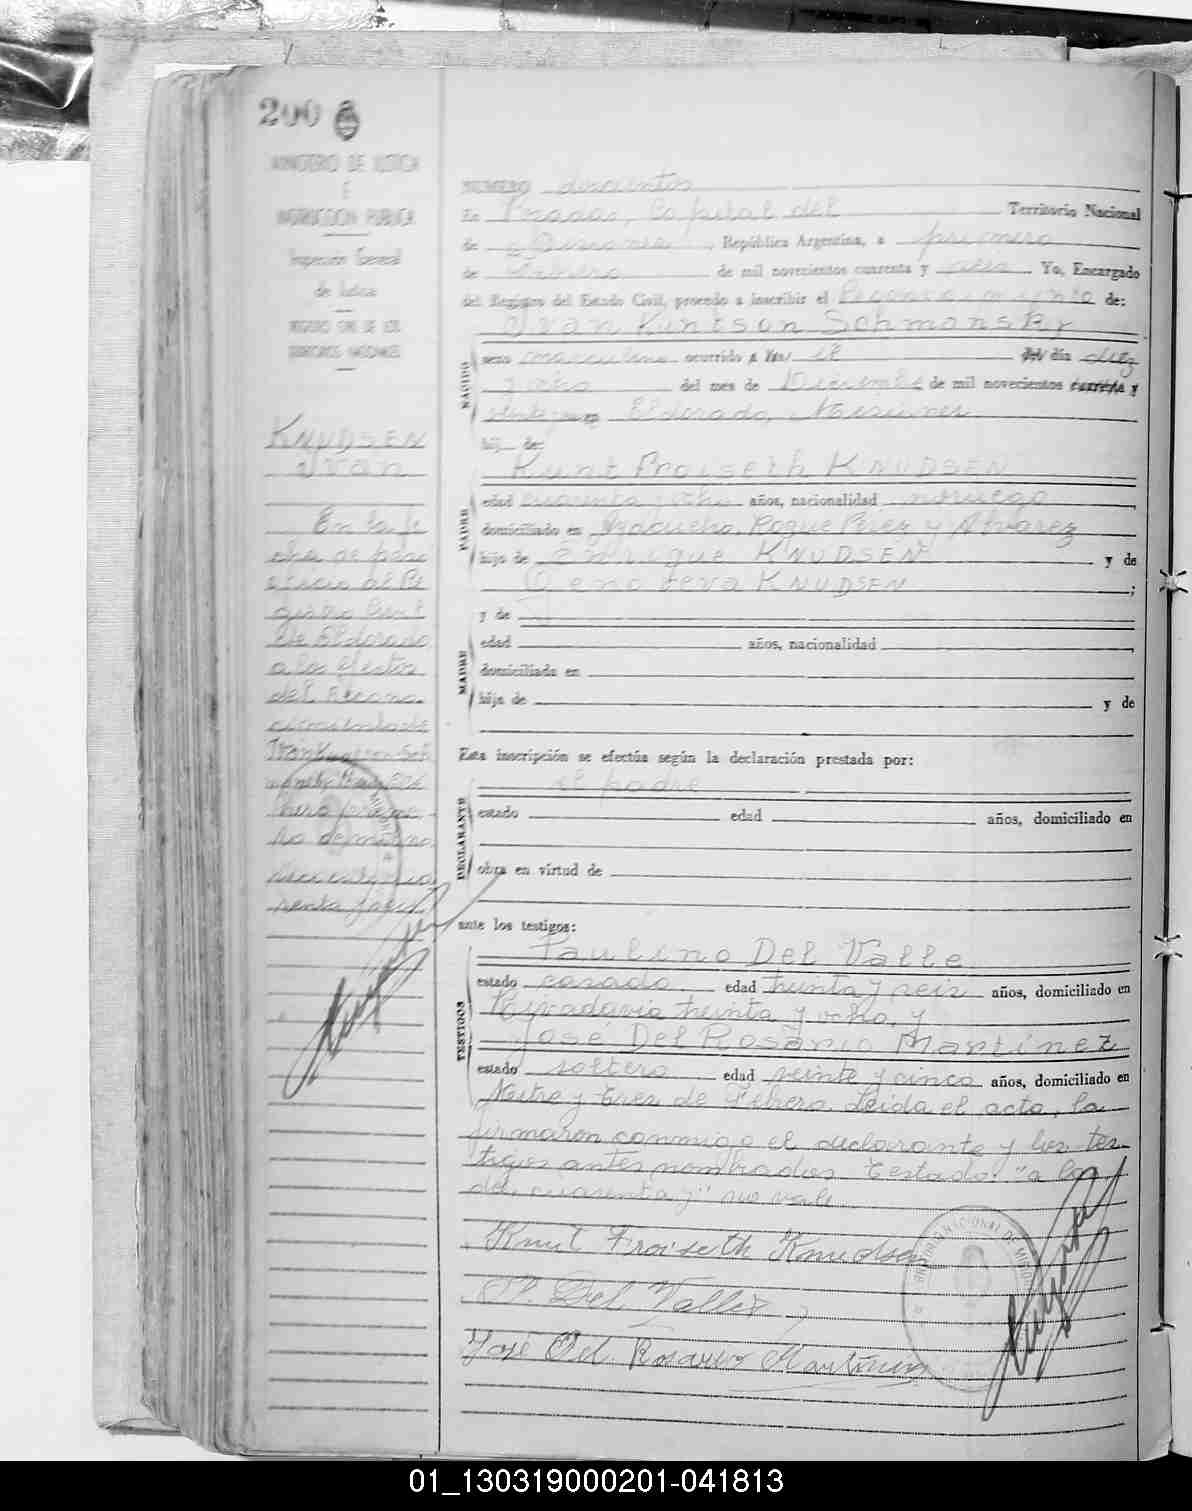 200
MINISTERIO DE JUSTICIA
E
INSTRUCCION PUBLICA
Inspección General
de Justicia
REGISTRO CIVIL DE LOS
TERRITORIOS NACIONALES
KNUDSEN
Ivan
En la fe
cha se
al Re
gistro Civil
de Eldorado
a los efectos
del Recono
cimiento de
Ivan Knudson Sch
primero
de mil no
vecientos cua
renta y seis
NUMERO doscientos
En Posadas, Capital del Territorio Nacional
de Misiones, República Argentina, a primero
de de mil novecientos cuarenta y seis Yo, Encargado
del Registro del Estado Civil, procedo a inscribir el Reconocimiento de:
Ivan Kundson Schmansky
NACIDO
sexo masculino ocurrido a las el del día diez
y ocho del mes de Diciembre de mil novecientos cuarenta y
en Eldorado, Misiones.
hij de:
Kunt Froiseth KNUDSEN
PADRE
edad cuarenta y ocho años, nacionalidad noruego
domiciliado en Ayacucho, Roque Pérez y Alvarez
hijo de Enrique KNUDSEN y de
Genoveva KNUDSEN ;
y de
MADRE
edad años, nacionalidad
domiciliada en
hija de y de
Esta inscripción se efectúa según la declaración prestada por:
el padre
DECLARANTE
estado edad años, domiciliado en
obra en virtud de
ante los testigos:
Paulino Del Valle
TESTIGOS
estado casado edad treinta y seis años, domiciliado en
Rivadavia treinta y ocho, y
José Del Rosario Martínez
estado soltero edad veinte y cinco años, domiciliado en
Mitre y tres de Febrero. Leída el acta, la
firmaron conmigo el declarante y los tes-
tigos antes nombrados. Testado: "a las
del cuarenta y" no vale.
Knut Froiseth Knudsen
P. Del Valle
José Del Rosario Martínez
01_130319000201-041813